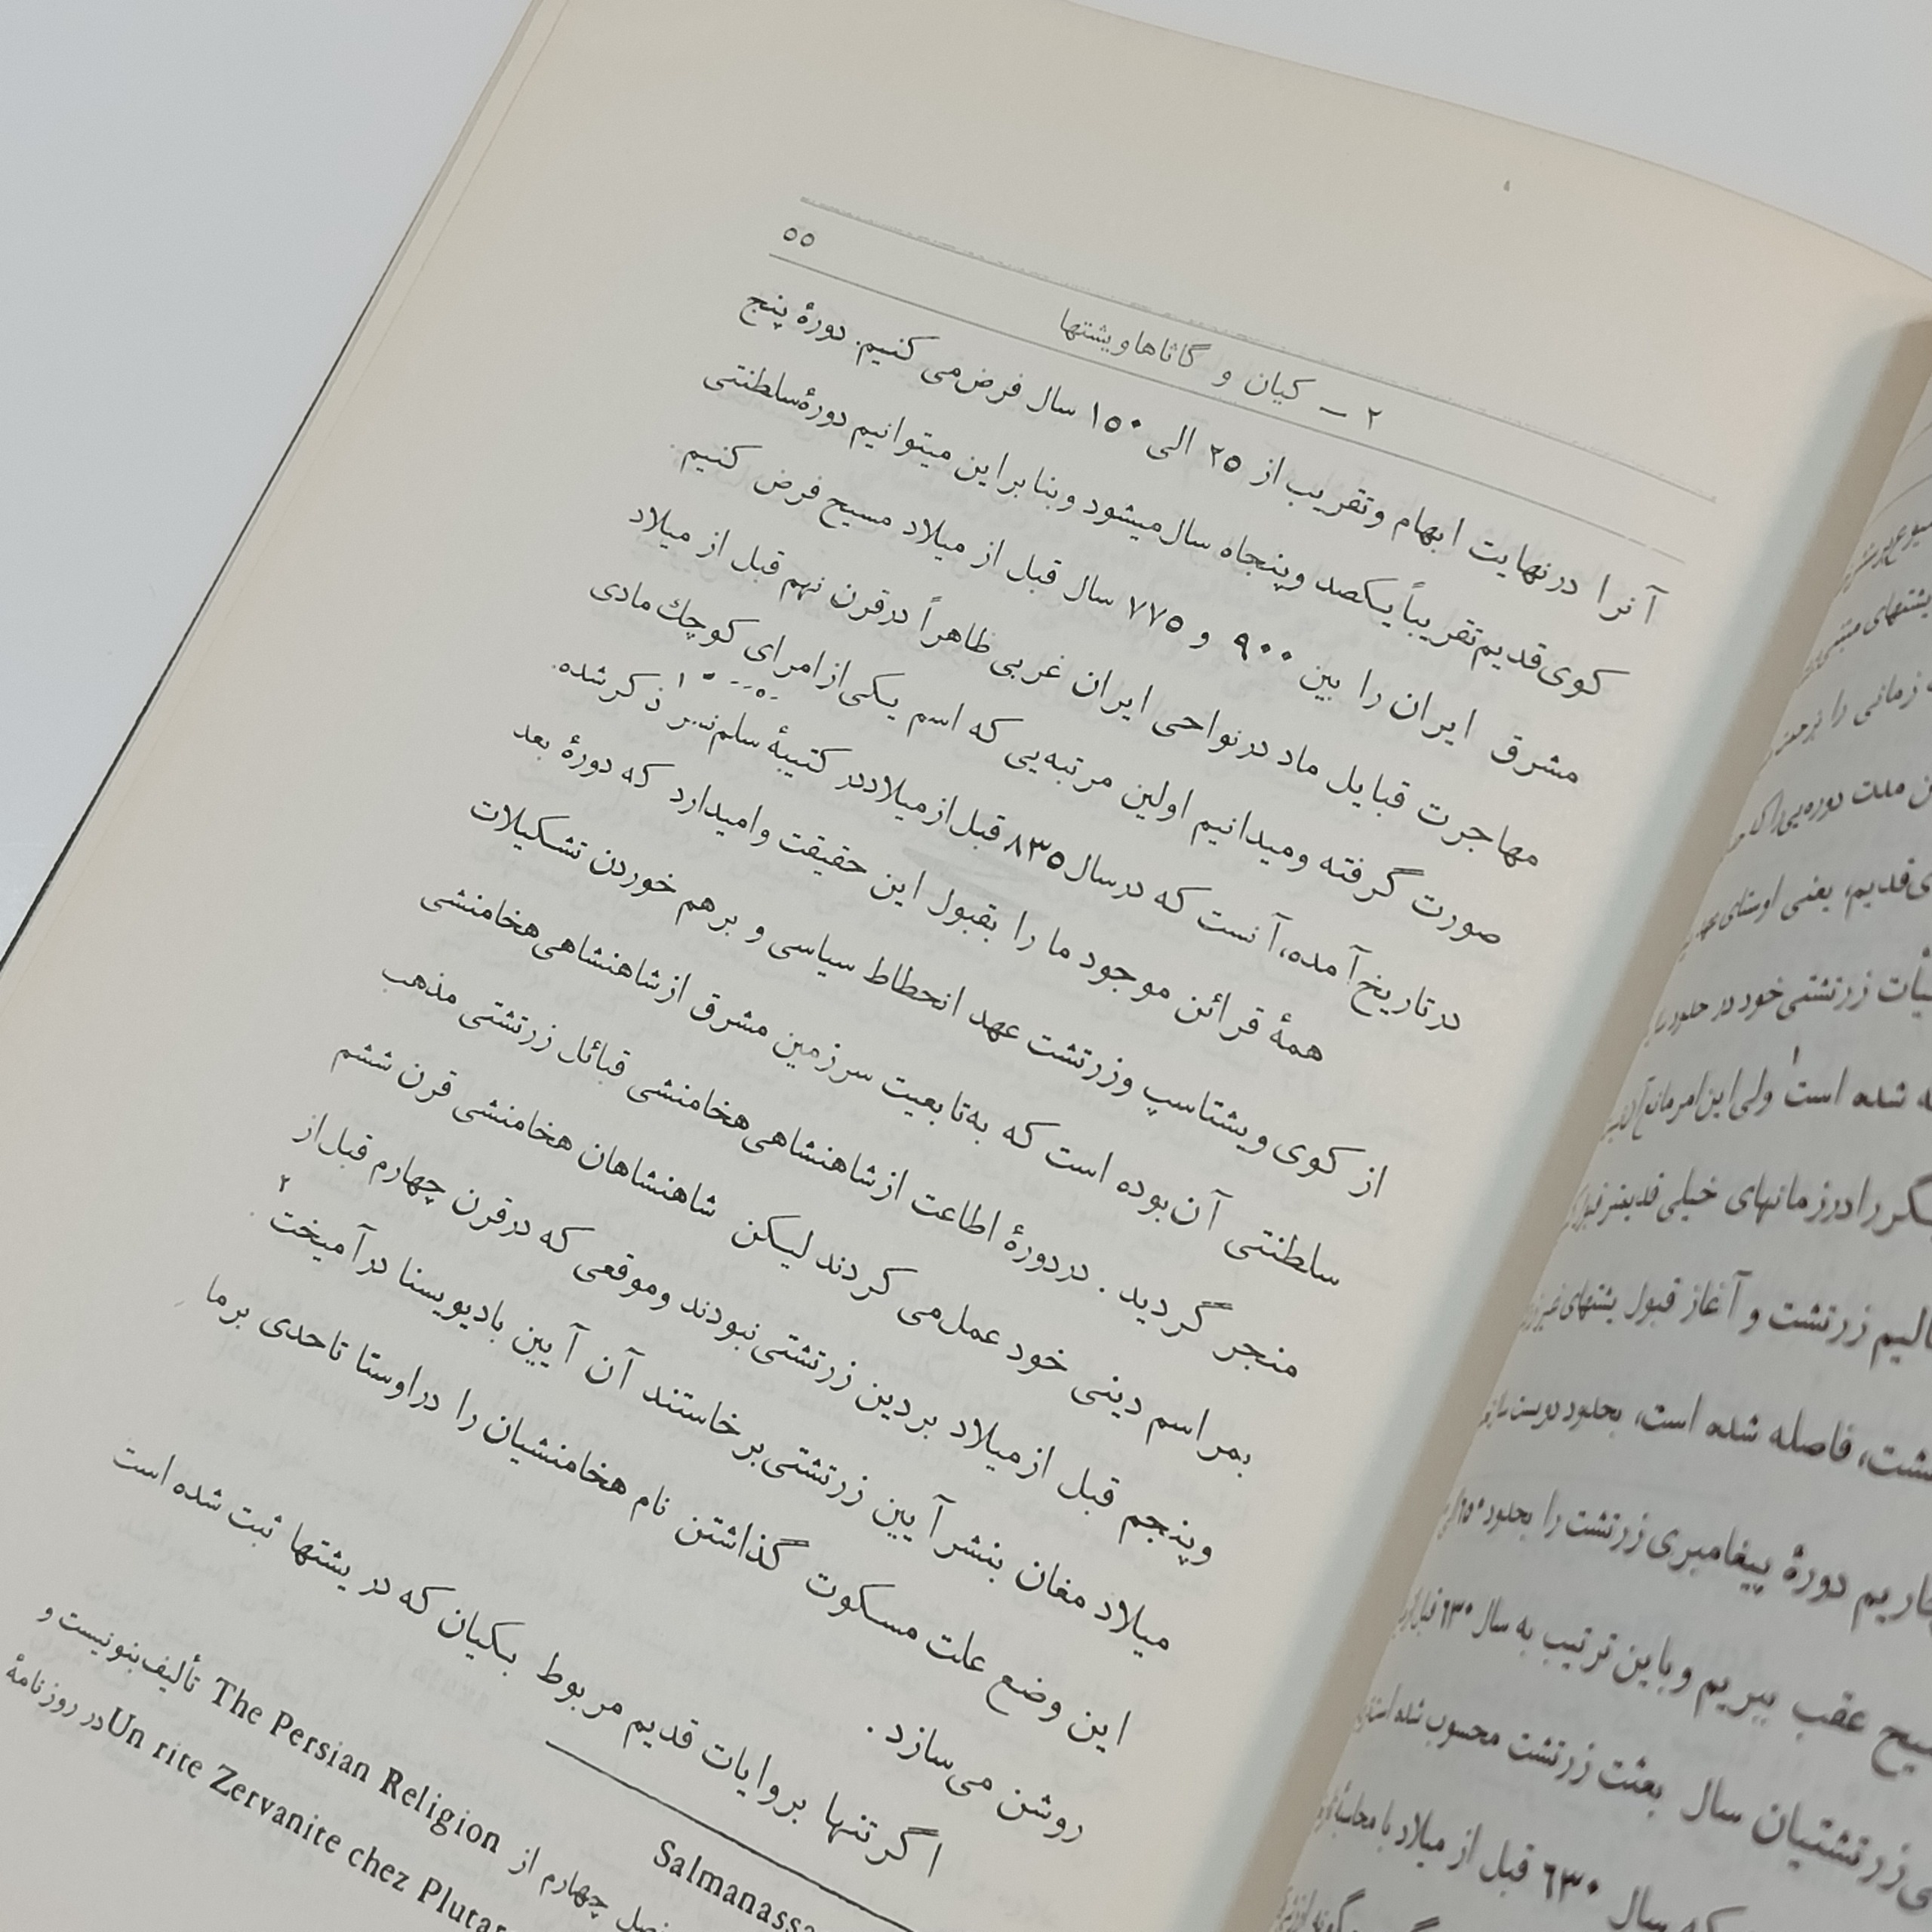 ۲ – کیان و گاثاها و یشتها
۵۵
آنرا درنهایت ابهام وتقریب از ۲۵ الی ۱۵۰ سال فرض می کنیم. دورهٔ پنج
کوی قدیم تقریباً یکصد وپنجاه سال میشود وبنا براین میتوانیم دورهٔ سلطنتی
مشرق ایران را بین ۹۰۰ و ۷۷۵ سال قبل از میلاد مسیح فرض کنیم.
مهاجرت قبایل ماد درنواحی ایران غربی ظاهراً درقرن نهم قبل از میلاد
صورت گرفته ومیدانیم اولین مرتبه یی که اسم یکی ازامرای کوچك مادی
درتاریخ آمده، آنست که درسال ۸۳۵ قبل ازمیلاددر کتیبهٔ سلم ذکرشده.
همهٔ قرائن موجود ما را بقبول این حقیقت وامیدارد که دورهٔ بعد
از کوی ویشتاسپ وزرتشت عهد انحطاط سیاسی و برهم خوردن تشکیلات
سلطنتی آن بوده است که به تابعیت سرزمین مشرق ازشاهنشاهی هخامنشی
منجر گردید. دردورهٔ اطاعت ازشاهنشاهی هخامنشی قبائل زرتشتی مذهب
بمراسم دینی خود عمل می کردند لیکن شاهنشاهان هخامنشی قرن ششم
وپنجم قبل ازمیلاد بردین زرتشتی نبودند وموقعی که درقرن چهارم قبل از
میلاد مغان بنشر آیین زرتشتی برخاستند آن آیین بادیویسنا درآمیخت ۲.
این وضع علت مسکوت گذاشتن نام هخامنشیان را دراوستا تاحدی برما
روشن می سازد.
اگرتنها بروایات قدیم مربوط بکیان که در یشتها ثبت شده است
چهارم از The Persian Religion تألیف بنونیست و
Un rite Zervanite chez در روزنامهٔ
زمانی را
ملت دوره یی را که
قدیم، یعنی اوستای
زرتشتی خود در حدود
شده است ۱ ولی این امر مانع
را درزمانهای خیلی قدیمتر
زرتشت و آغاز قبول یشتهای
فاصله شده است، بحدود
دورهٔ پیغامبری زرتشت را بحدود
عقب ببریم وباین ترتیب به سال ۶۳۰
زرتشتیان سال بعثت زرتشت محسوب شده
که سال ۶۳۰ قبل از میلاد با محاسبهٔ